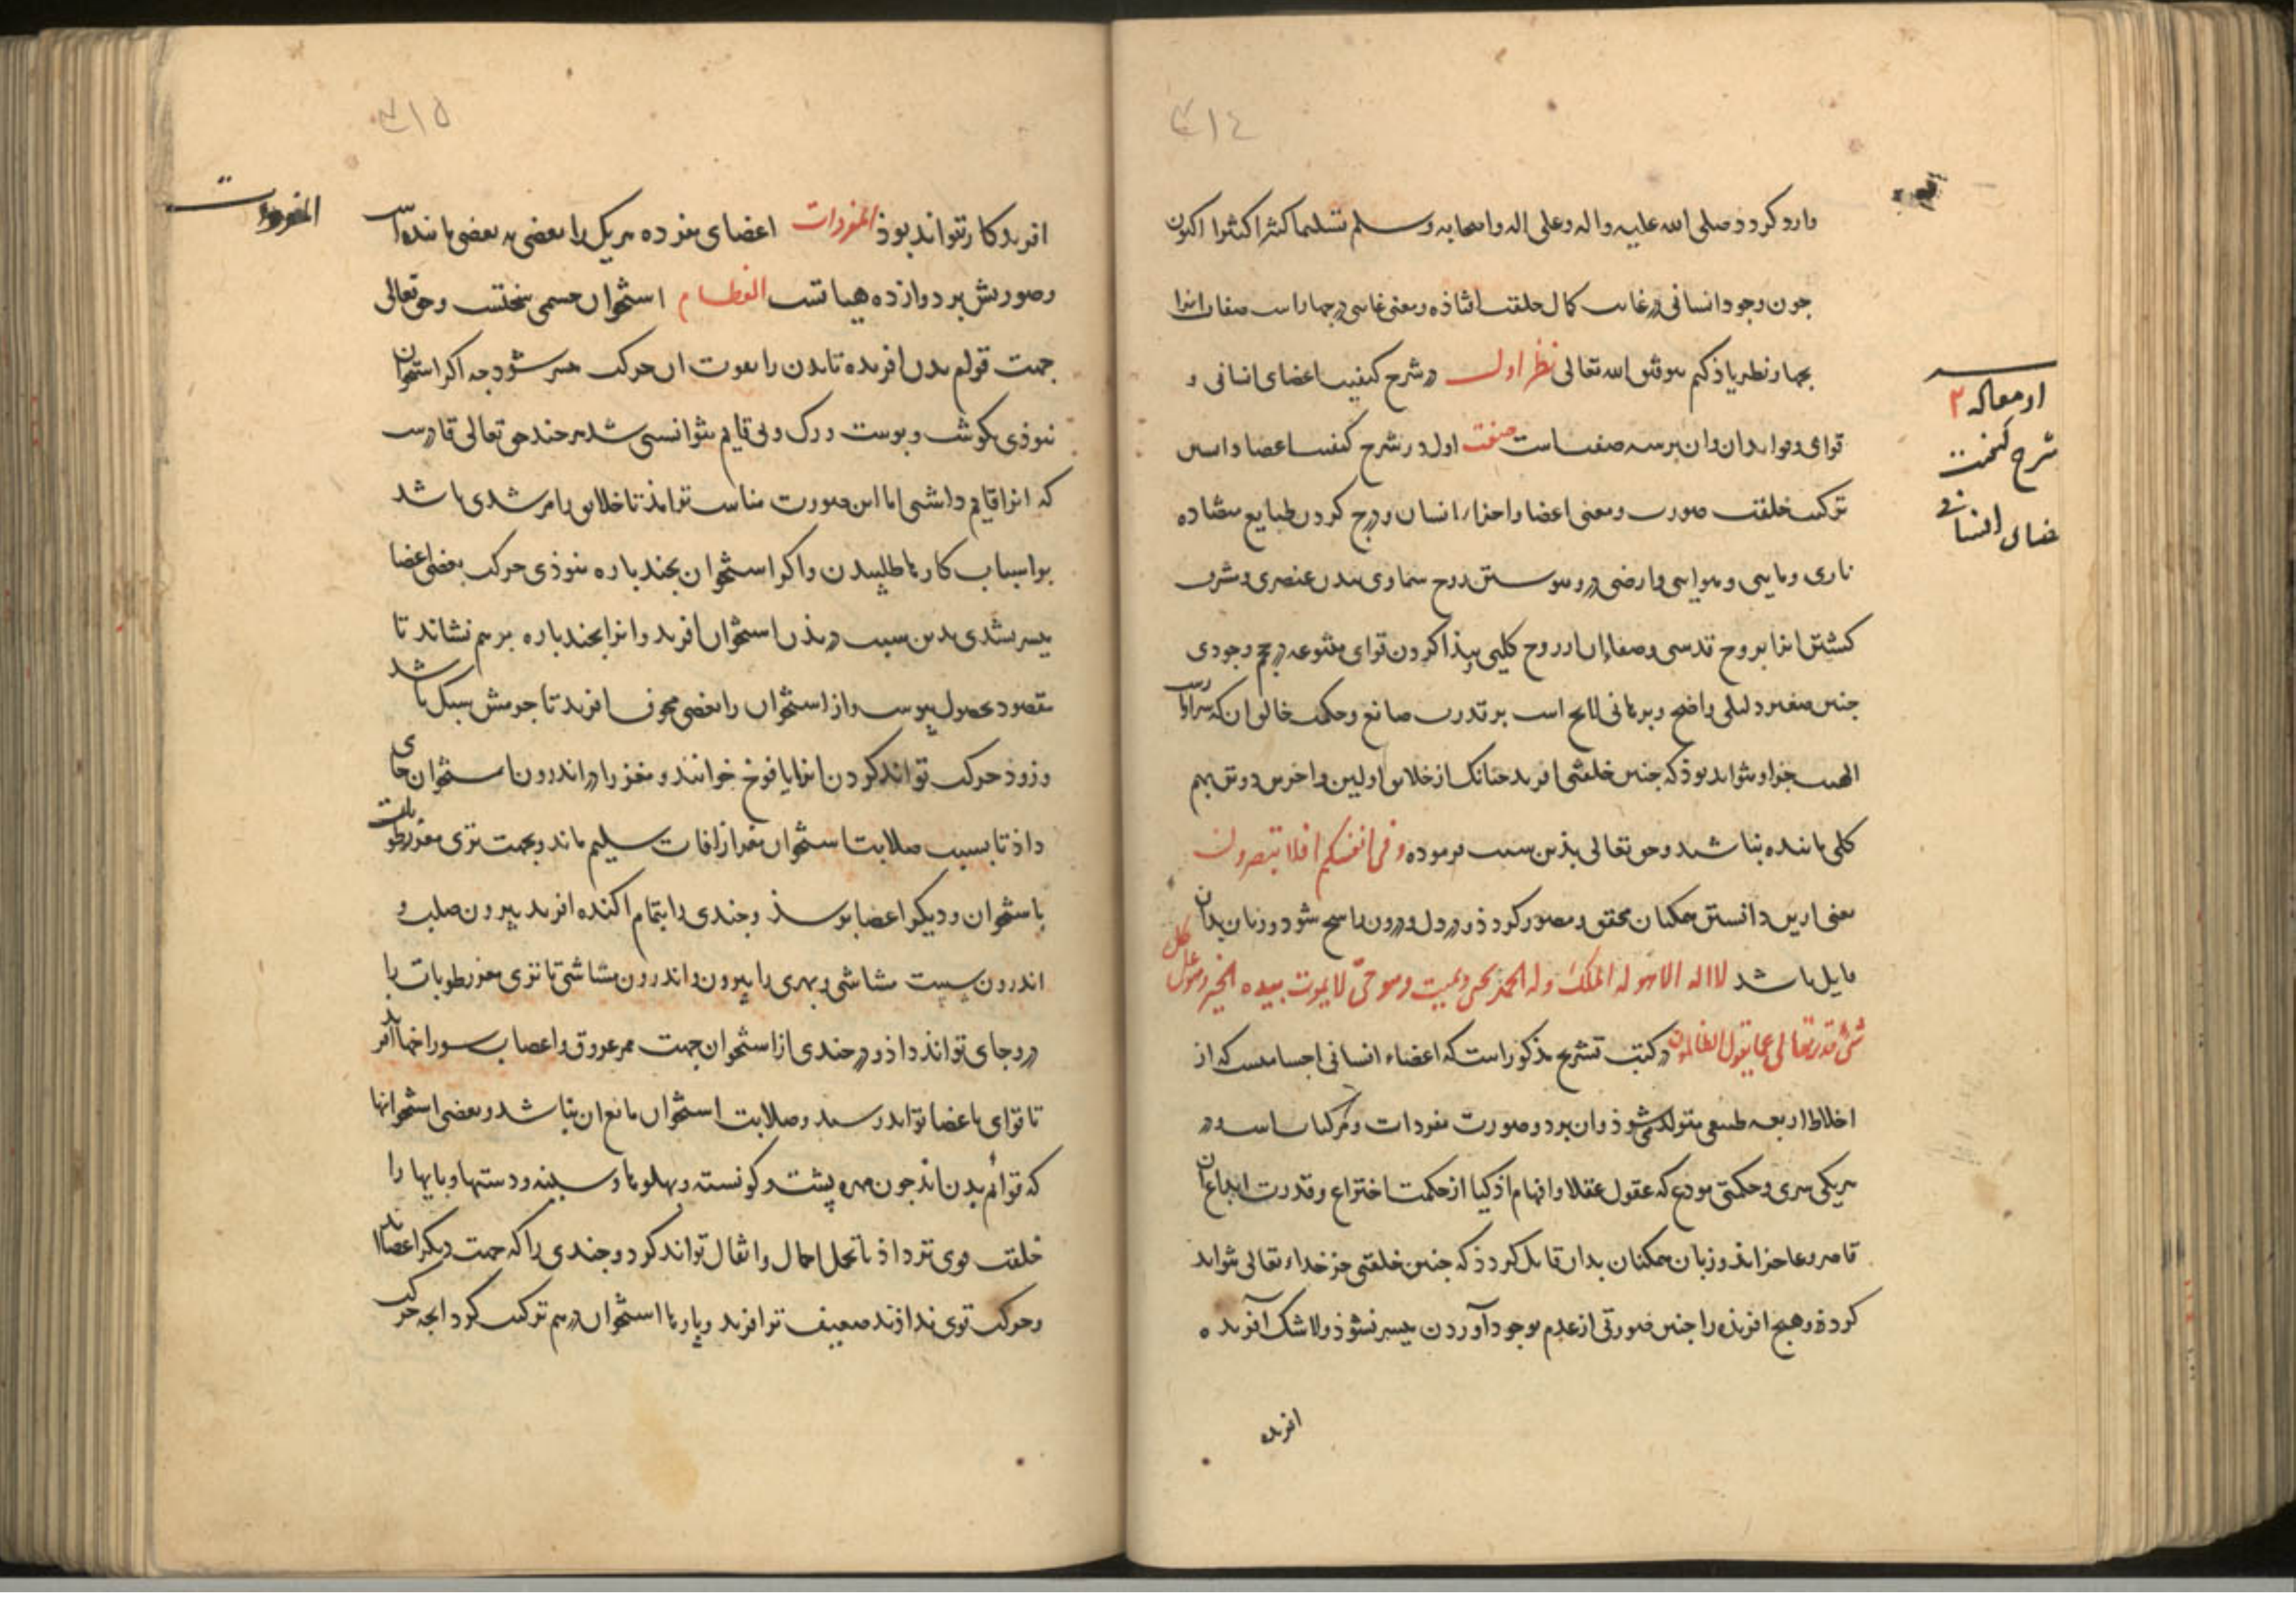 ۳۱٤
وارد کردد صلی الله علیه واله وعلی اله واصحابه وسلم تسلیما کثیرا کثیرا اکنون
جون وجود انسانی در غایت کمال خلقت افتاذه ومعنی غایتی در جهار است صفات انرا
بجهار نظر یاذ کنم بتوفیق الله تعالی نظر اول در شرح کیفیت اعضای انسانی و
قوای وتوابع ان وان بر سه صفت است صفت اول در شرح کیفیت اعضا
ترکیب خلقت صورت ومعنی اعضا واجزاء انسان ودرج کردن طبایع متضاده
ناری ومایی وهوایی وارضی درو وپیوستن روح سماوی ببدن عنصری وشرف
کشتن انرا بروح قدسی وصفا ان از روح کلی پیذا کردن قوای متنوعه در وجودی
جنین صغیر دلیلی واضح وبرهانی لایح است بر قدرت صانع وحکمت خالق ان که سزاوار
الهیت جز او نتواند بوذ که جنین خلقتی افرید جنانک از خلایق اولین واخرین دو تن بهم
کلی ماننده نباشند وحق تعالی بذین سبب فرموده وفی انفسکم افلا تبصرون
یعنی از این دانستن حکیمان محقق ومصور کردد ودر دل ودرون راسخ شود وزبان بدان
مایل باشد لا اله الا هو له الملک وله الحمد یحیی ویمیت وهو حیّ لا یموت بیده الخیر وهو علی کل
شیء قدیر تعالی عما یقول الظالمون در کتب تشریح مذکور است که اعضاء انسانی اجسامیست که از
اخلاط اربعه طبیعی متولد می شوذ وان بر دو صورت مفردات ومرکبات است ودر
هریکی سری وحکمتی مودع که عقول عقلا وافهام اذکیا از حکمت اختراع وقدرت ابداع ان
قاصر وعاجزاند وزبان همکنان بدان قایل کردد که جنین خلقتی جز خداء تعالی نتواند
کردذ وهیچ افریذه را جنین صورتی از عدم بوجود آوردن میسر نشوذ ولا شک آفریده
افریده
از مقاله ۲
شرح کیفیت
اعضای انسانی
۳۱۵
المفردات
افریدکار نتواند بوذ المفردات اعضای مفرده هریک را بعضی به بعضی ماننده است
وصورتش بر دوازده هیاتست العظام استخوان جسمی سختست وحق تعالی
جهت قوام بدن افریده تا بدن را بقوت ان حرکت میسر شود جه اکر استخوان
نبوذی بکوشت وپوست ورک وپی قایم نتوانستی شد هرجند حق تعالی قادرست
که انرا قایم داشتی اما این صورت مناسب تر امذ تا خلایق را مرشدی باشد
بر اسباب کارها طلبیدن واکر استخوان بجند پاره نبوذی حرکت بعضی اعضا
میسر نشدی بدین سبب در بذن استخوان افرید وانرا بجند پاره بر هم نشاند تا
مقصود بحصول پیوست واز استخوان را بعضی مجوف افرید تا جرمش سبک باشد
وزوذ حرکت تواند کردن انرا یافوخ خوانند ومغز را در اندرون استخوان جای
داذ تا بسبب صلابت استخوان مغز از افات سلیم ماند وبجهت تری مغز رطوبات
باستخوان ودیکر اعضا برسذ وجندی را بتمام اکنده افرید بیرون صلب و
اندرون سست مشاشی وبهری را بیرون واندرون مشاشی تا تری مغز رطوبات را
درو جای تواند داذ ودر جندی از استخوان جهت ممر عروق واعصاب سوراخها افرید
تا قوای باعضا تواند رسید وصلابت استخوان مانع ان نباشد وبعضی استخوانها
که قوام بدن اند جون مهره پشت وکونسته وپهلوها وسینه ودستها وپایها را
خلقت قوی تر داذ تا تحمل احمال واثقال تواند کرد وجندی را که جهت دیکر اعضااند
وحرکت قوی نداذند ضعیف تر افرید وپارها استخوان در هم ترکیب کرد انجه حرکت